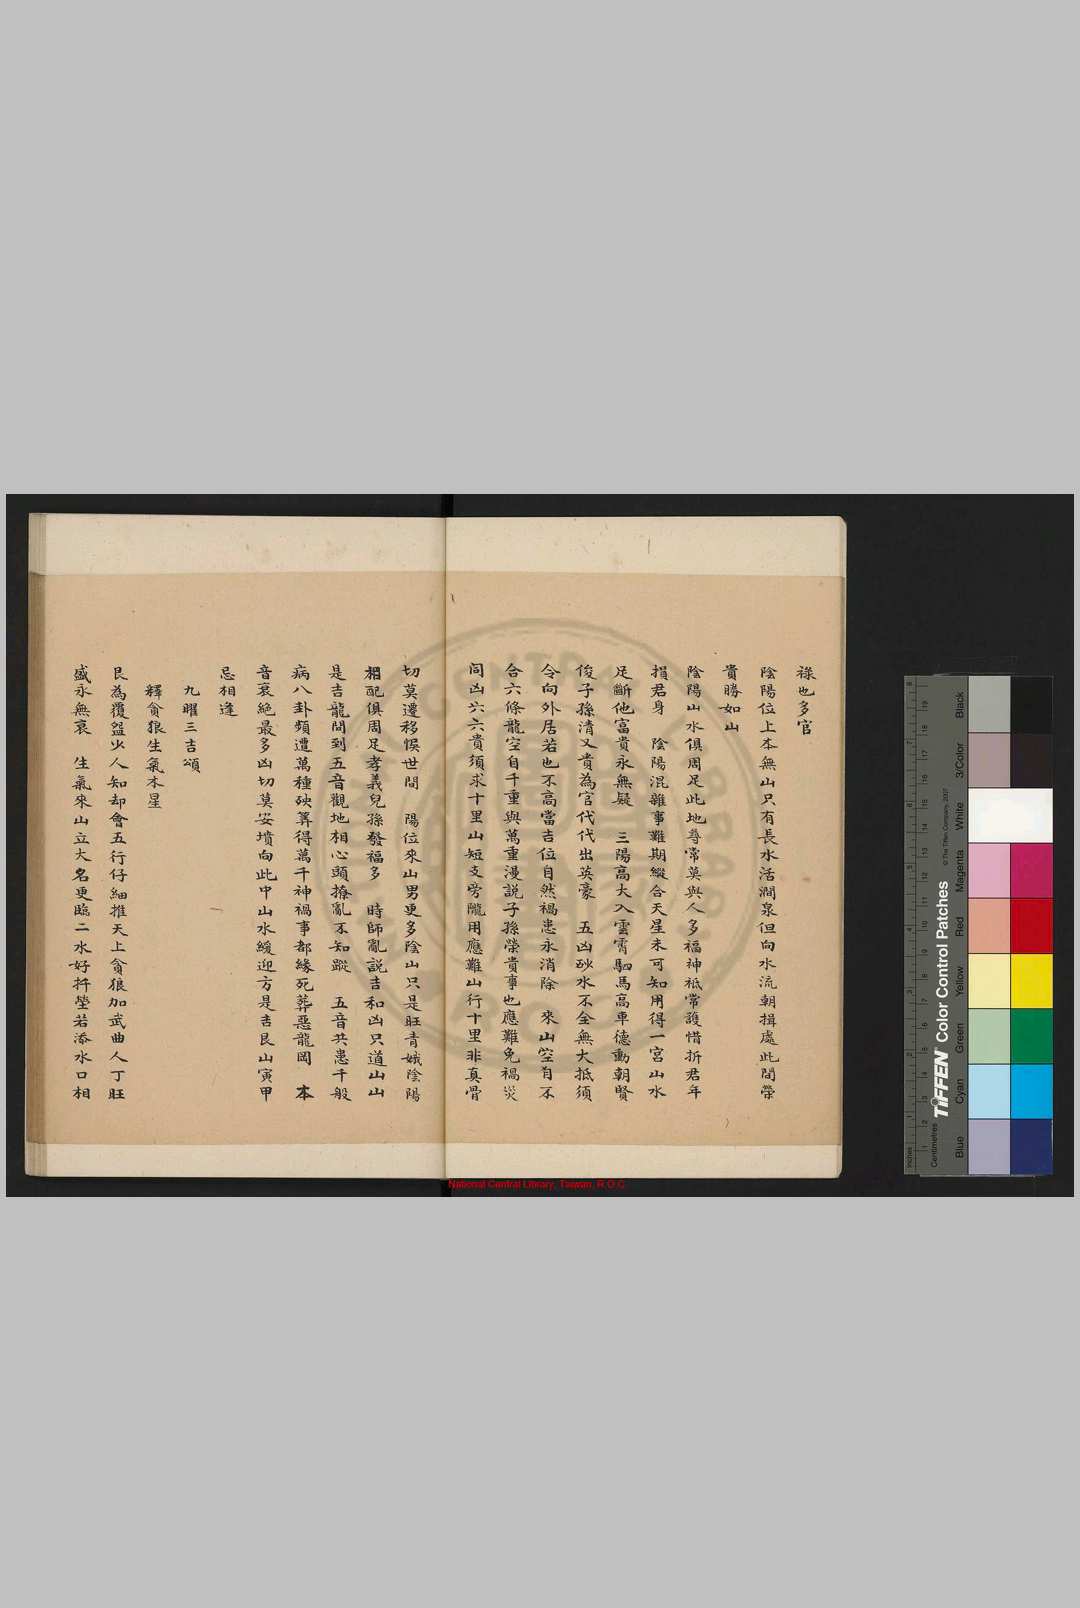 祿也多官
陰陽位上本無山只有長水活澗泉但向水流朝揖處此間榮
貴勝如山
陰陽山水俱周足此地尋常莫與人多福神祇常護惜折君年
損君身　陰陽混雜事難期縱合天星未可知用得一宮山水
足斷他富貴永無疑　三陽高大入雲霄駟馬高車德動朝賢
俊子孫清又貴為官代代出英豪　五凶砂水不全無大抵須
令向外居若也不高當吉位自然禍患永消除　來山空有不
合六條龍空自千重與萬重漫説子孫榮貴事也應難免禍災
同凶六六貴須求十里山短支旁隴用應難山行十里非真骨
切莫遷移悞世間　陽位來山男更多陰山只是旺青娥陰陽
相配俱周足孝義兒孫發福多　時師亂説吉和凶只道山山
是吉龍問到五音觀地相心頭撩亂不知蹤　五音共患千般
病八卦頻遭萬種殃筭得萬千神禍事都緣死葬惡龍岡　本
音衰絶最多凶切莫安墳向此中山水緩迎方是吉艮山寅甲
忌相逢
九曜三吉頌
釋貪狼生氣木星
艮為覆盌少人知却會五行仔細推天上貪狼加武曲人丁旺
盛永無衰　生氣來山立大名更臨二水好扦塋若添水口相
National Central Library, Taiwan, R.O.C
Centimetres
Inches
TIFFEN® Color Control Patches
© The Tiffen Company, 2007
Blue
Cyan
Green
Yellow
Red
Magenta
White
3/Color
Black